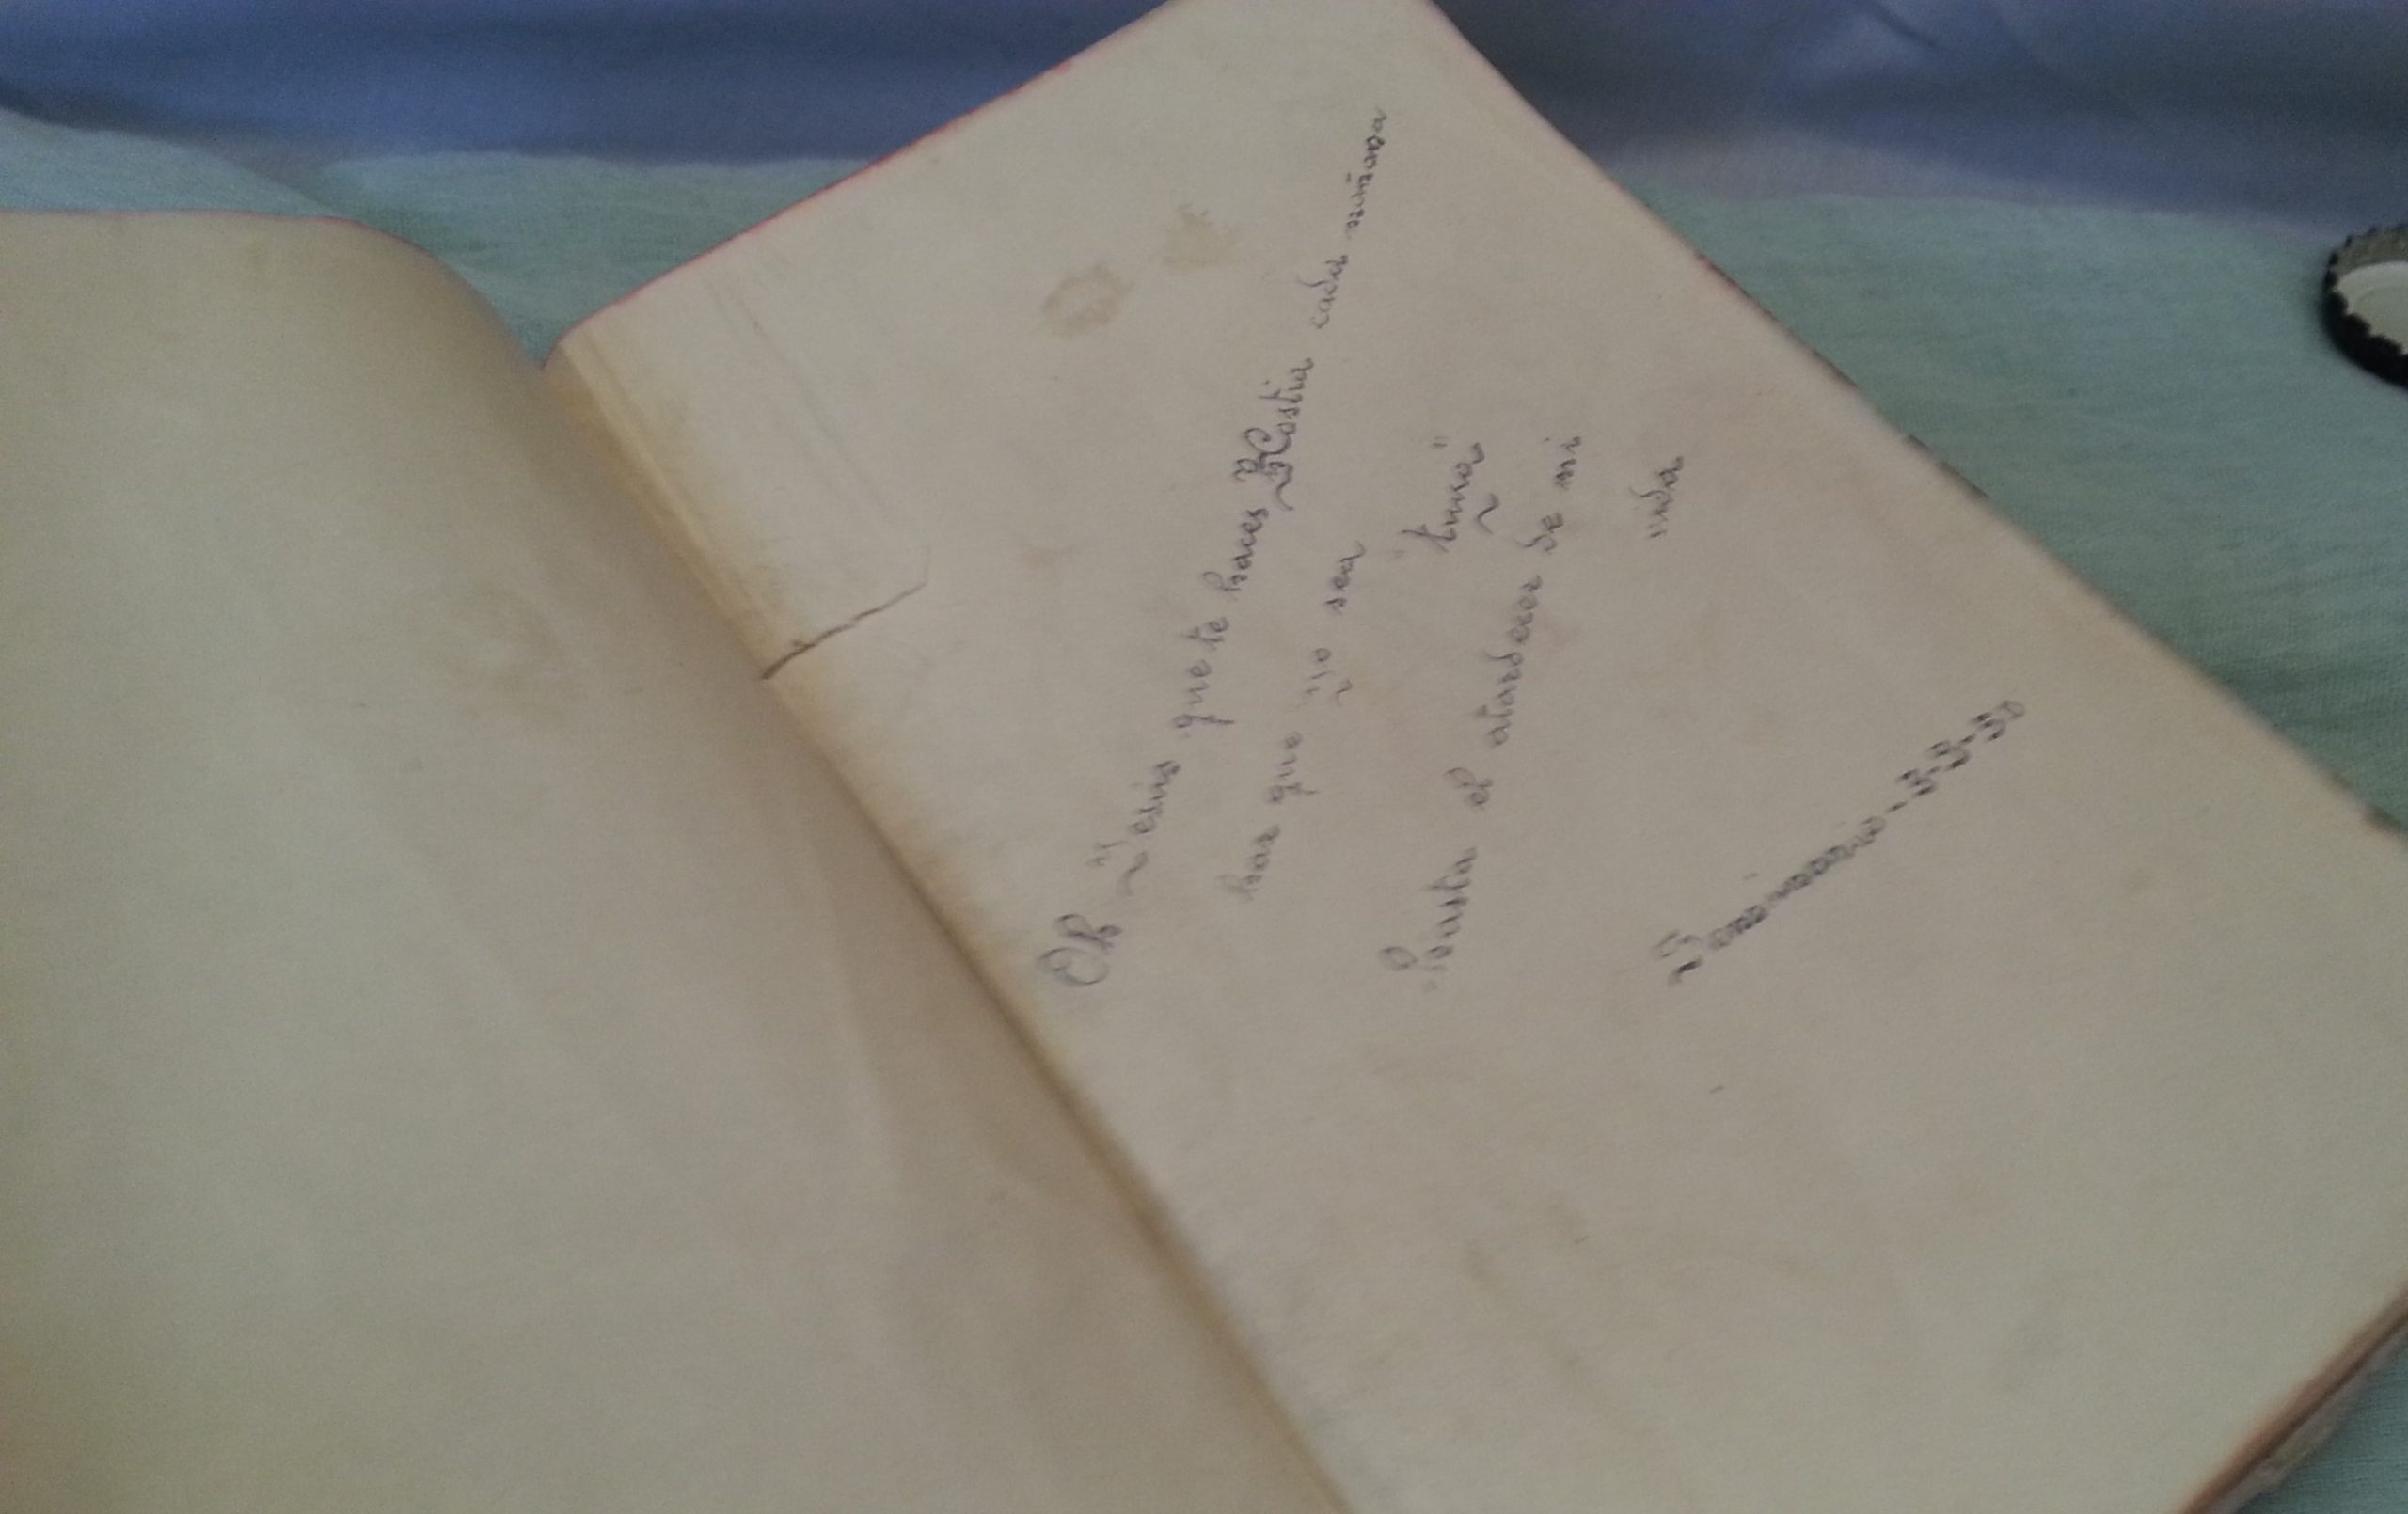 Oh Jesús que te haces Hostia cada mañana
haz que yo sea
tuya
hasta el atardecer de mi
vida